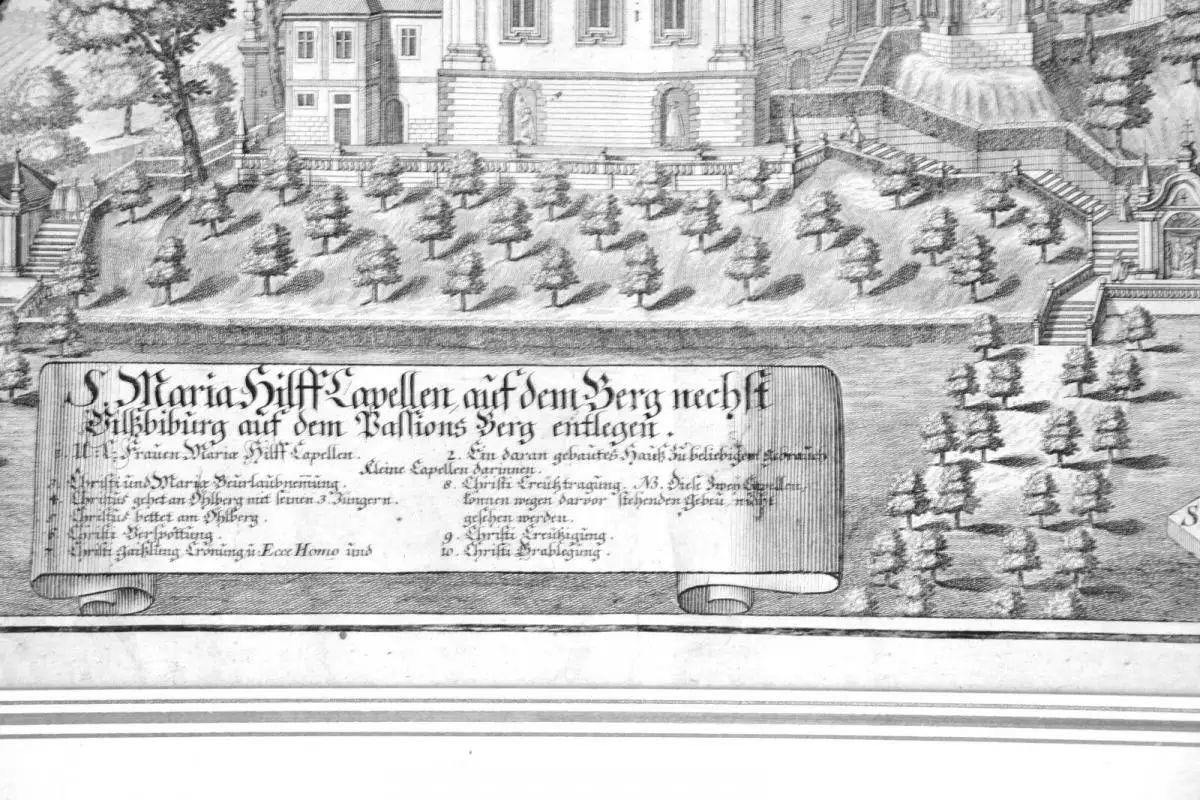 S. Maria Hilff Capellen, auf dem Berg nechst
Vilßbiburg auf dem Passions Berg entlegen.
1. U: L: Frauen Maria Hilff Capellen.
2. Ein daran gebautes Hauß zu beliebigem gebrauch
Kleine Capellen darinnen.
3. Christi und Mariæ Beurlaubnemung.
4. Christus gehet an Ohlberg mit seinen 3. Jüngern.
5. Christus bettet am Ohlberg.
6. Christi Verspottung.
7. Christi Gaißlung Crönung u: Ecce Homo und
8. Christi Creütztragung. NB. Diese zwey Capellen,
können wegen darvor stehenden Gebeu, nicht
gesehen werden.
9. Christi Creützigung.
10. Christi Grablegung.
S